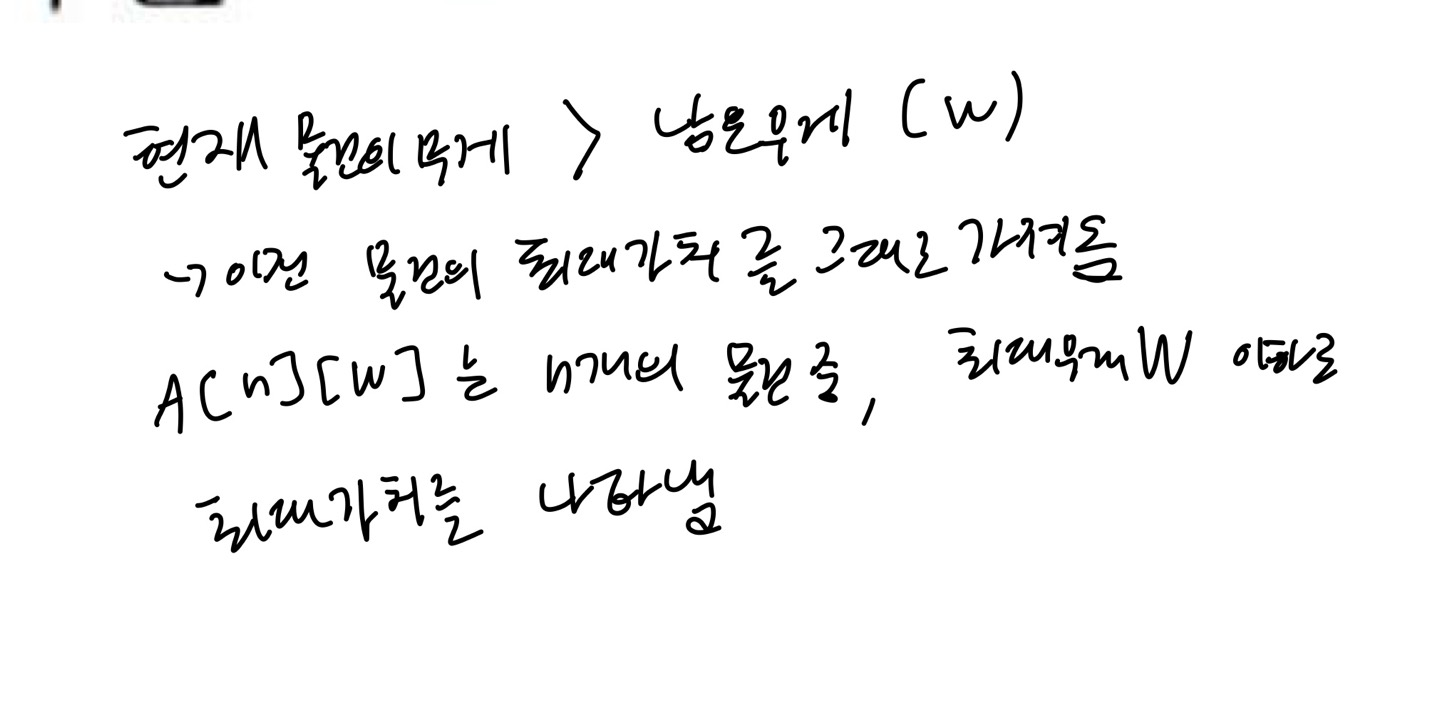 현재 물건의 무게 > 남은무게 (W)
→ 이전 물건의 최대가치를 그대로 가져옴
A[n][W]는 n개의 물건 중, 최대무게 W 이하로
최대가치를 나타냄